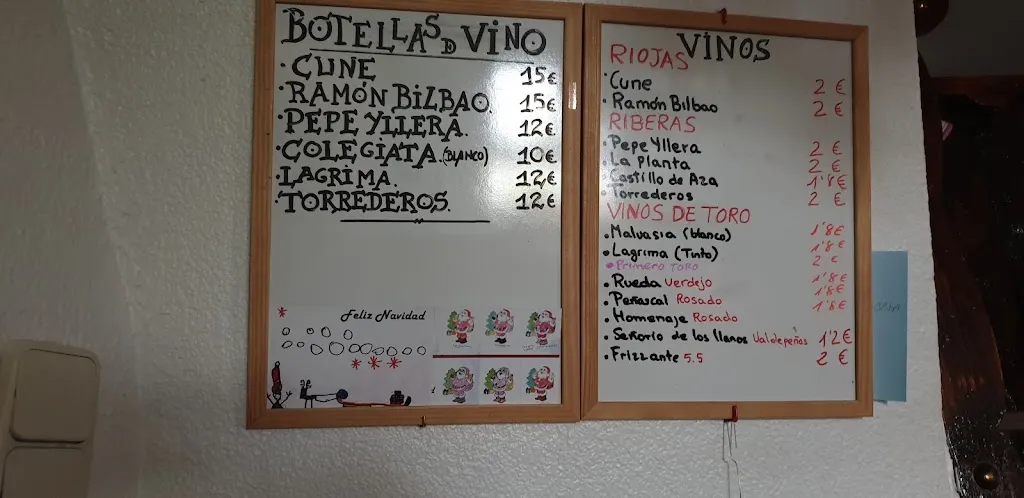 BOTELLAS D VINO
· CUNE 15€
· RAMÓN BILBAO. 15€
· PEPE YLLERA. 12€
· COLEGIATA.(BLANCO) 10€
· LAGRIMA. 12€
· TORREDEROS. 12€
Feliz Navidad
VINOS
RIOJAS
· Cune 2 €
· Ramón Bilbao 2 €
RIBERAS
· Pepe Yllera 2 €
· La Planta 2 €
· Castillo de Aza 1'8€
· Torrederos 2 €
VINOS DE TORO
· Malvasia (blanco) 1'8€
· Lagrima (Tinto) 1'8€
· Primero TORO 2 €
· Rueda Verdejo 1'8€
· Peñascal Rosado 1'8€
· Homenaje Rosado 1'8€
· Señorio de los llanos Valdepeñas 1'2€
· Frizzante 5.5 2 €